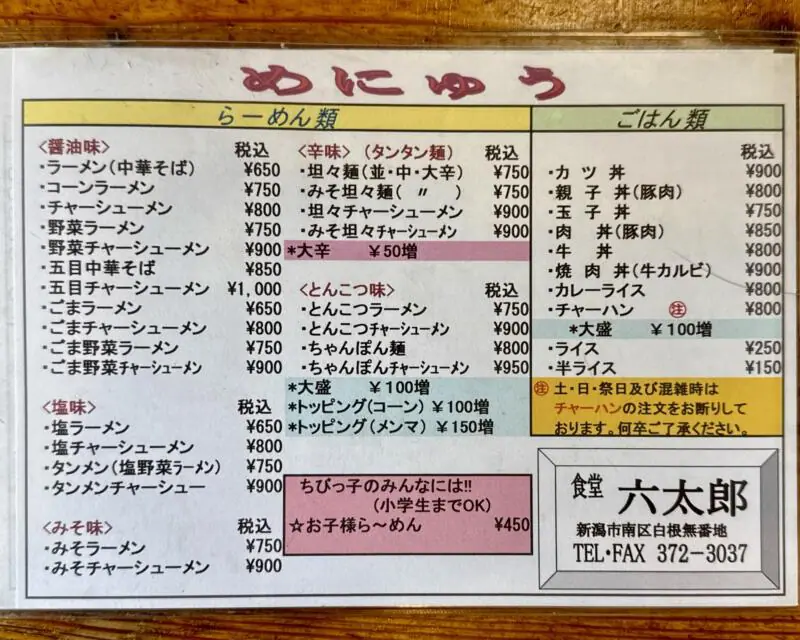 めにゅう
らーめん類
<醤油味> 税込
・ラーメン(中華そば) ¥650
・コーンラーメン ¥750
・チャーシューメン ¥800
・野菜ラーメン ¥750
・野菜チャーシューメン ¥900
・五目中華そば ¥850
・五目チャーシューメン ¥1,000
・ごまラーメン ¥650
・ごまチャーシューメン ¥800
・ごま野菜ラーメン ¥750
・ごま野菜チャーシューメン ¥900
<塩味> 税込
・塩ラーメン ¥650
・塩チャーシューメン ¥800
・タンメン(塩野菜ラーメン) ¥750
・タンメンチャーシュー ¥900
<みそ味> 税込
・みそラーメン ¥750
・みそチャーシューメン ¥900
<辛味>(タンタン麺) 税込
・坦々麺(並・中・大辛) ¥750
・みそ坦々麺( 〃 ) ¥750
・坦々チャーシューメン ¥900
・みそ坦々チャーシューメン ¥900
*大辛 ¥50増
<とんこつ味> 税込
・とんこつラーメン ¥750
・とんこつチャーシューメン ¥900
・ちゃんぽん麺 ¥800
・ちゃんぽんチャーシューメン ¥950
*大盛 ¥100増
*トッピング(コーン) ¥100増
*トッピング(メンマ) ¥150増
ちびっ子のみんなには!!
(小学生までOK)
☆お子様ら~めん ¥450
ごはん類
税込
・カツ丼 ¥900
・親子丼(豚肉) ¥800
・玉子丼 ¥750
・肉丼(豚肉) ¥850
・牛丼 ¥800
・焼肉丼(牛カルビ) ¥900
・カレーライス ¥800
・チャーハン ㊟ ¥800
*大盛 ¥100増
・ライス ¥250
・半ライス ¥150
㊟ 土・日・祭日及び混雑時は
チャーハンの注文をお断りして
おります。何卒ご了承ください。
食堂 六太郎
新潟市南区白根無番地
TEL・FAX 372-3037